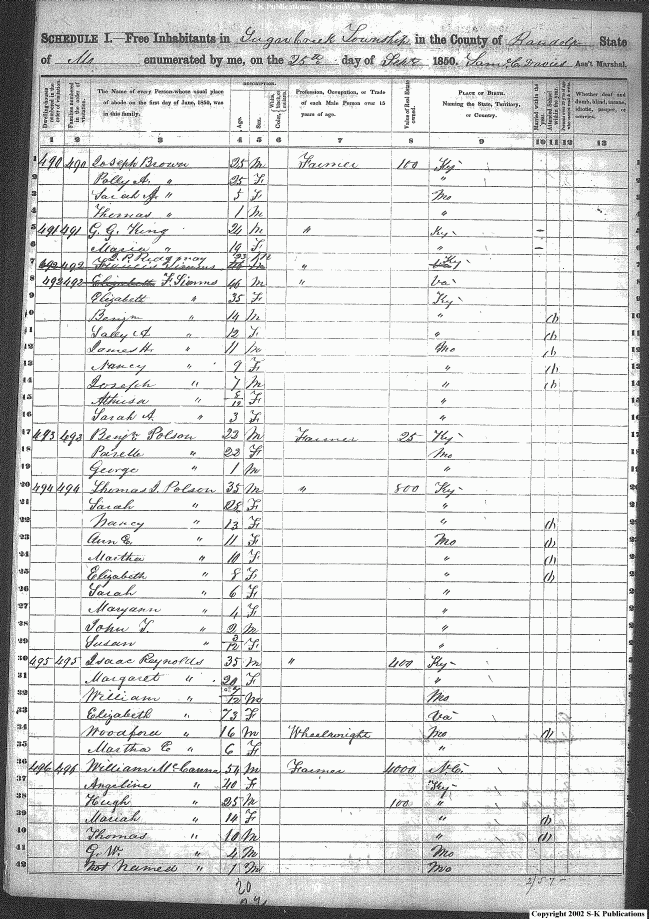 S-K Publications - USGenWeb Archives
SCHEDULE I.—Free Inhabitants in Sugar Creek Township in the County of Randolp State
of Mo enumerated by me, on the 25th day of Sept 1850. Saml C Davies Ass't Marshal.
Dwelling-houses numbered in the order of visitation.
Families numbered in the order of visitation.
The Name of every Person whose usual place of abode on the first day of June, 1850, was in this family.
DESCRIPTION.
Age.
Sex.
Color, White, black, or mulatto.
Profession, Occupation, or Trade of each Male Person over 15 years of age.
Value of Real Estate owned.
PLACE OF BIRTH.
Naming the State, Territory, or Country.
Married within the year.
Attended School within the year.
Whether deaf and dumb, blind, insane, idiotic, pauper, or convict.
1 2 3 4 5 6 7 8 9 10 11 12 13
1 490 490 Joseph Brower 25 M Farmer 100 Ky
2 Polly A. " 25 F "
3 Sarah A " 5 F Mo
4 Thomas " 1 M "
5 491 491 G. G. King 24 M " Ky
6 Maria " 19 F "
7 492 492 J. P. Ridgway 23 M " Ky
8 492 492 Elizabeth F. Simms 46 M " Va
9 Elizabeth " 35 F Ky
10 Benjn " 14 M " 1
11 Saley A " 12 F " 1
12 James H. " 11 M Mo 1
13 Nancy " 9 F " 1
14 Joseph " 7 M " 1
15 " 8/12 F "
16 Sarah A. " 3 F "
17 493 493 Benjn Polson 22 M Farmer 25 Ky
18 " 22 F Mo
19 George " 1 M "
20 494 494 Thomas J. Polson 35 M " 800 Ky
21 Sarah " 28 F "
22 Nancy " 13 F " 1
23 Ann E. " 11 F Mo 1
24 Martha " 10 F " 1
25 Elizabeth " 8 F " 1
26 Sarah " 6 F "
27 Maryann " 4 F "
28 John T. " 2 M "
29 Susan " 3/12 F "
30 495 495 Isaac Reynolds 35 M " 400 Ky
31 Margaret " 20 F "
32 William " /12 M Mo
33 Elizabeth " 73 F Va
34 Woodford " 16 M Wheelwright Mo 1
35 Martha E " 6 F "
36 496 496 William McCanna 54 M Farmer 4000 N.C.
37 Angeline " 40 F Ky
38 Hugh " 25 M 100 "
39 Mariah " 14 F " 1
40 Thomas " 10 M " 1
41 G. W. " 4 M Mo
42 Not Named " 1 M Mo
20
Copyright 2002 S-K Publications